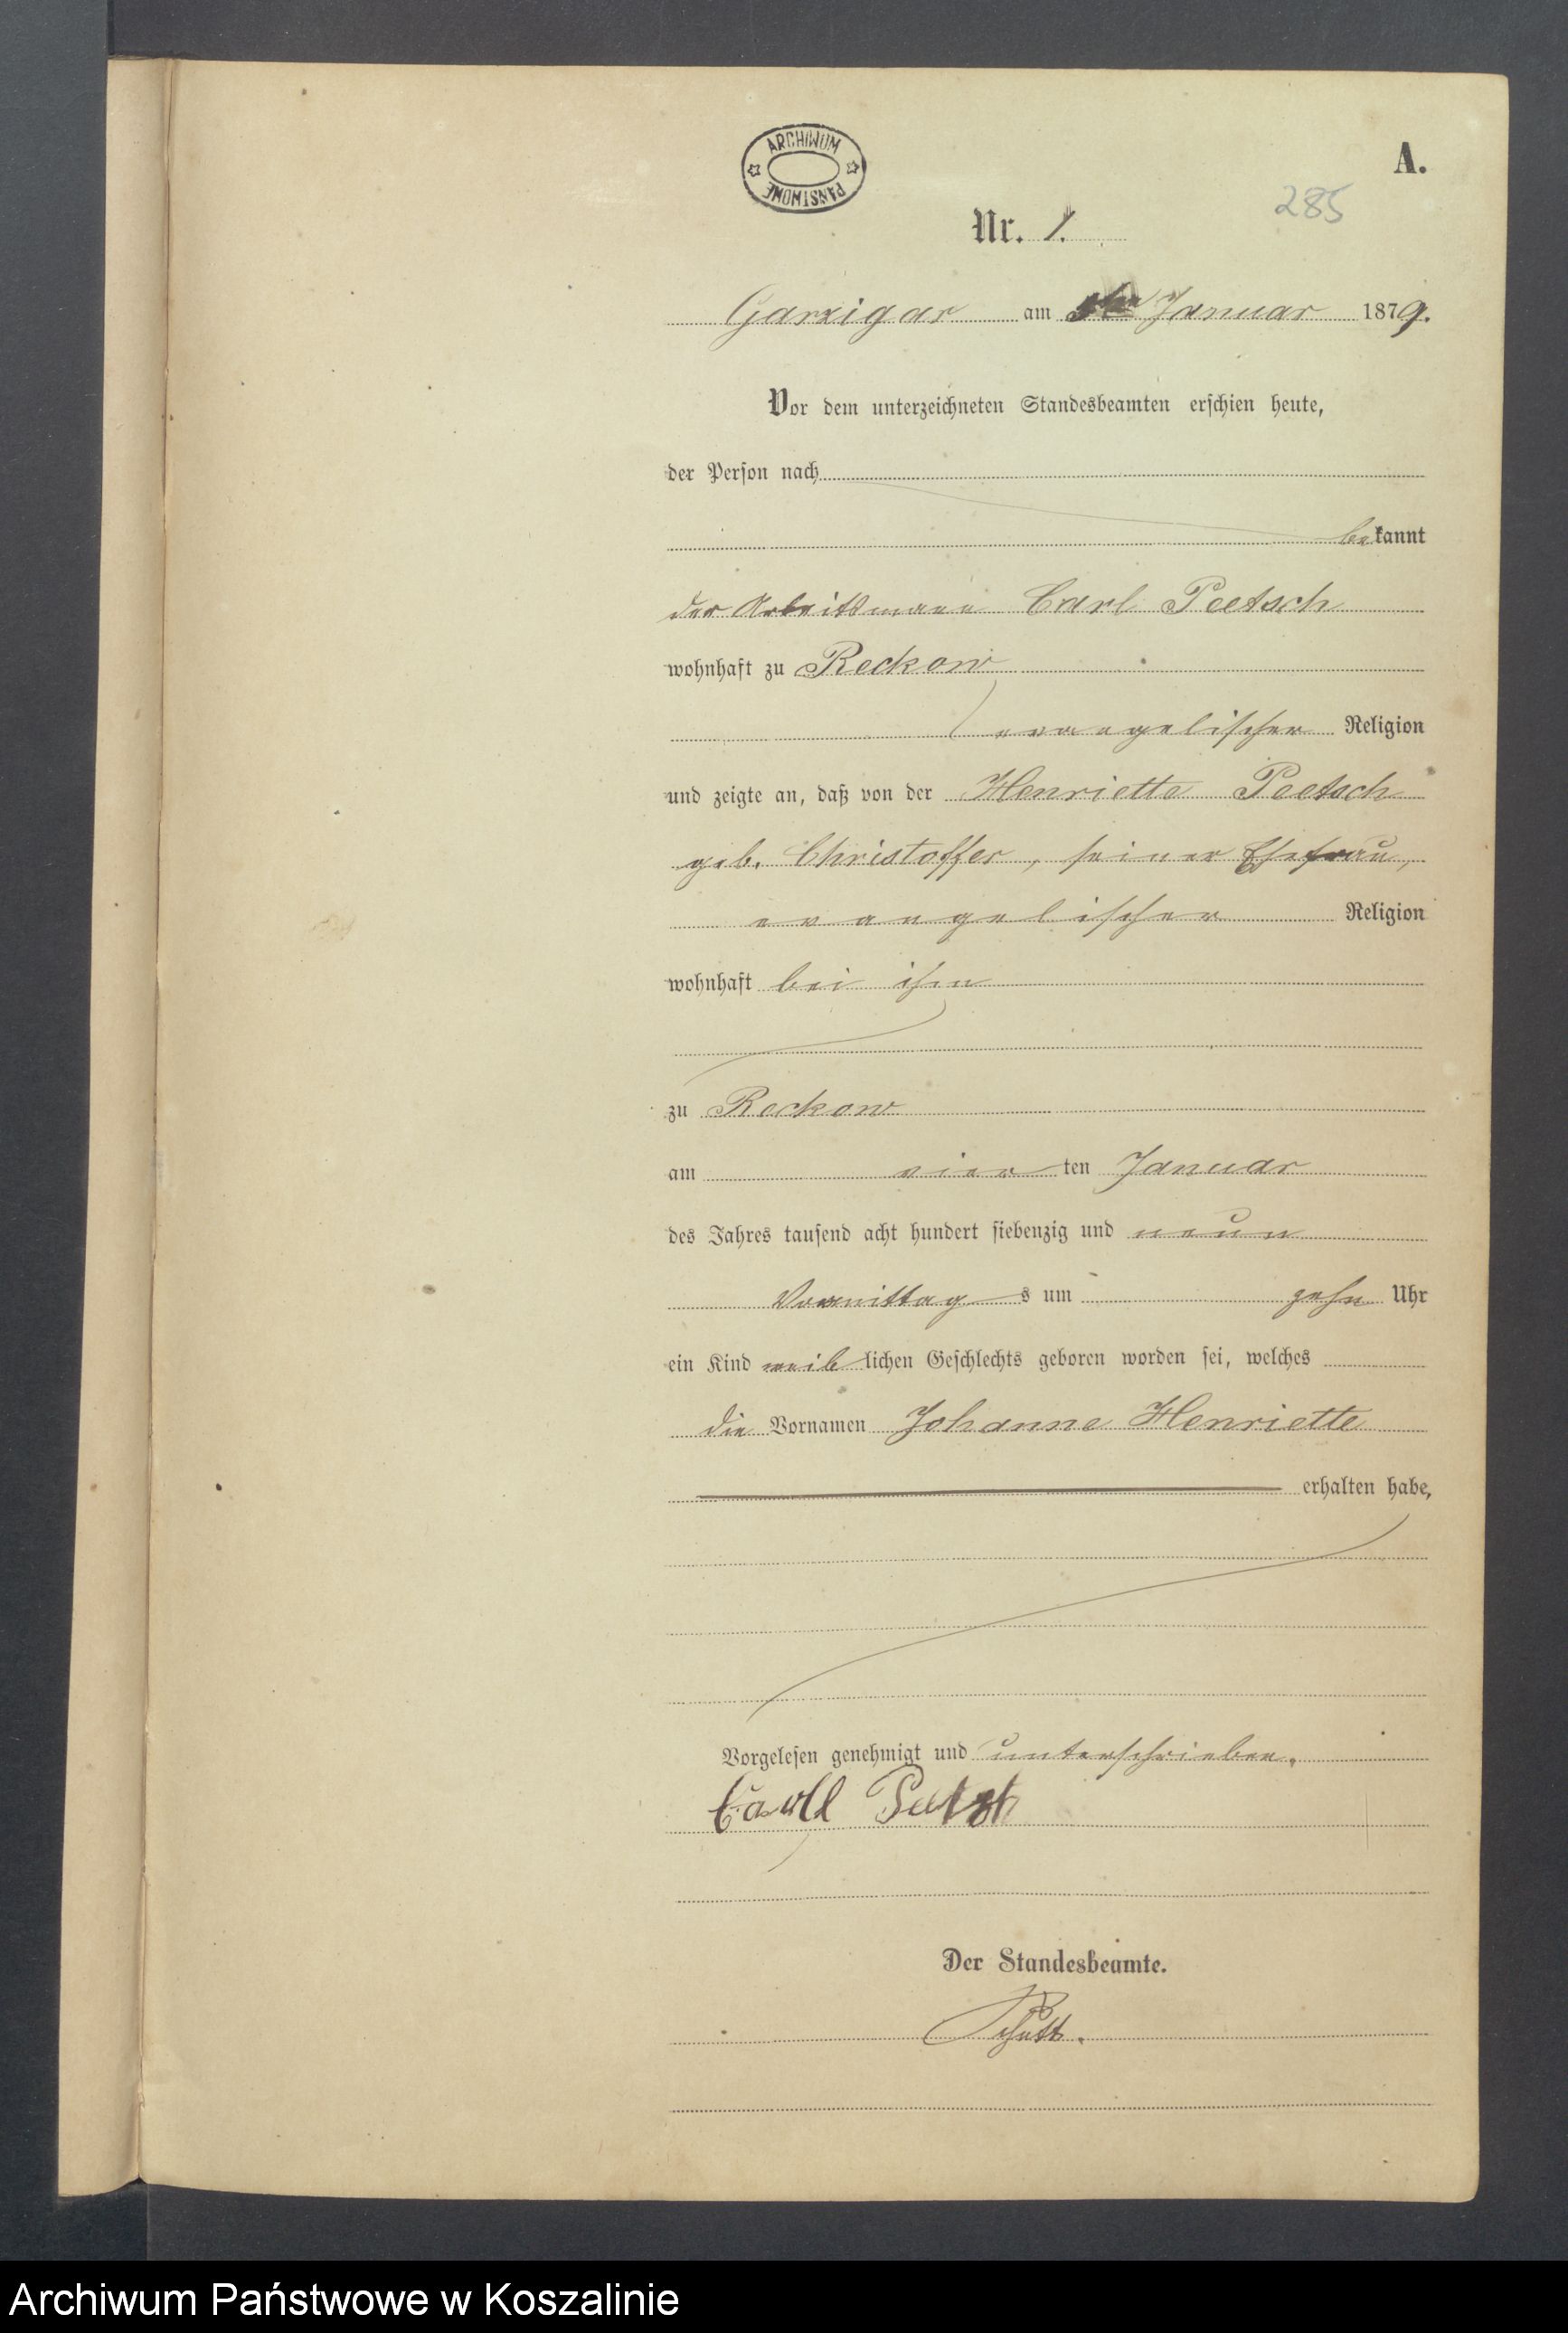 ARCHIWUM PAŃSTWOWE
A.
285
Nr. 1.
Garzigar am 5ten Januar 1879.
Vor dem unterzeichneten Standesbeamten erschien heute,
der Person nach
bekannt
der Arbeitsmann Carl Peetsch
wohnhaft zu Reckow
evangelischer Religion
und zeigte an, daß von der Henriette Peetsch
geb. Christoffer, seiner Ehefrau,
evangelischer Religion
wohnhaft bei ihm
zu Reckow
am vierten Januar
des Jahres tausend acht hundert siebenzig und neun
Vormittags um zehn Uhr
ein Kind weiblichen Geschlechts geboren worden sei, welches
die Vornamen Johanne Henriette
erhalten habe,
Vorgelesen genehmigt und unterschrieben.
Carll
Der Standesbeamte.
Archiwum Państwowe w Koszalinie